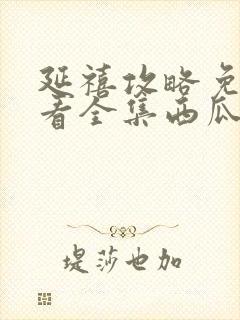 延禧攻略免
看全集西瓜
堤莎也加